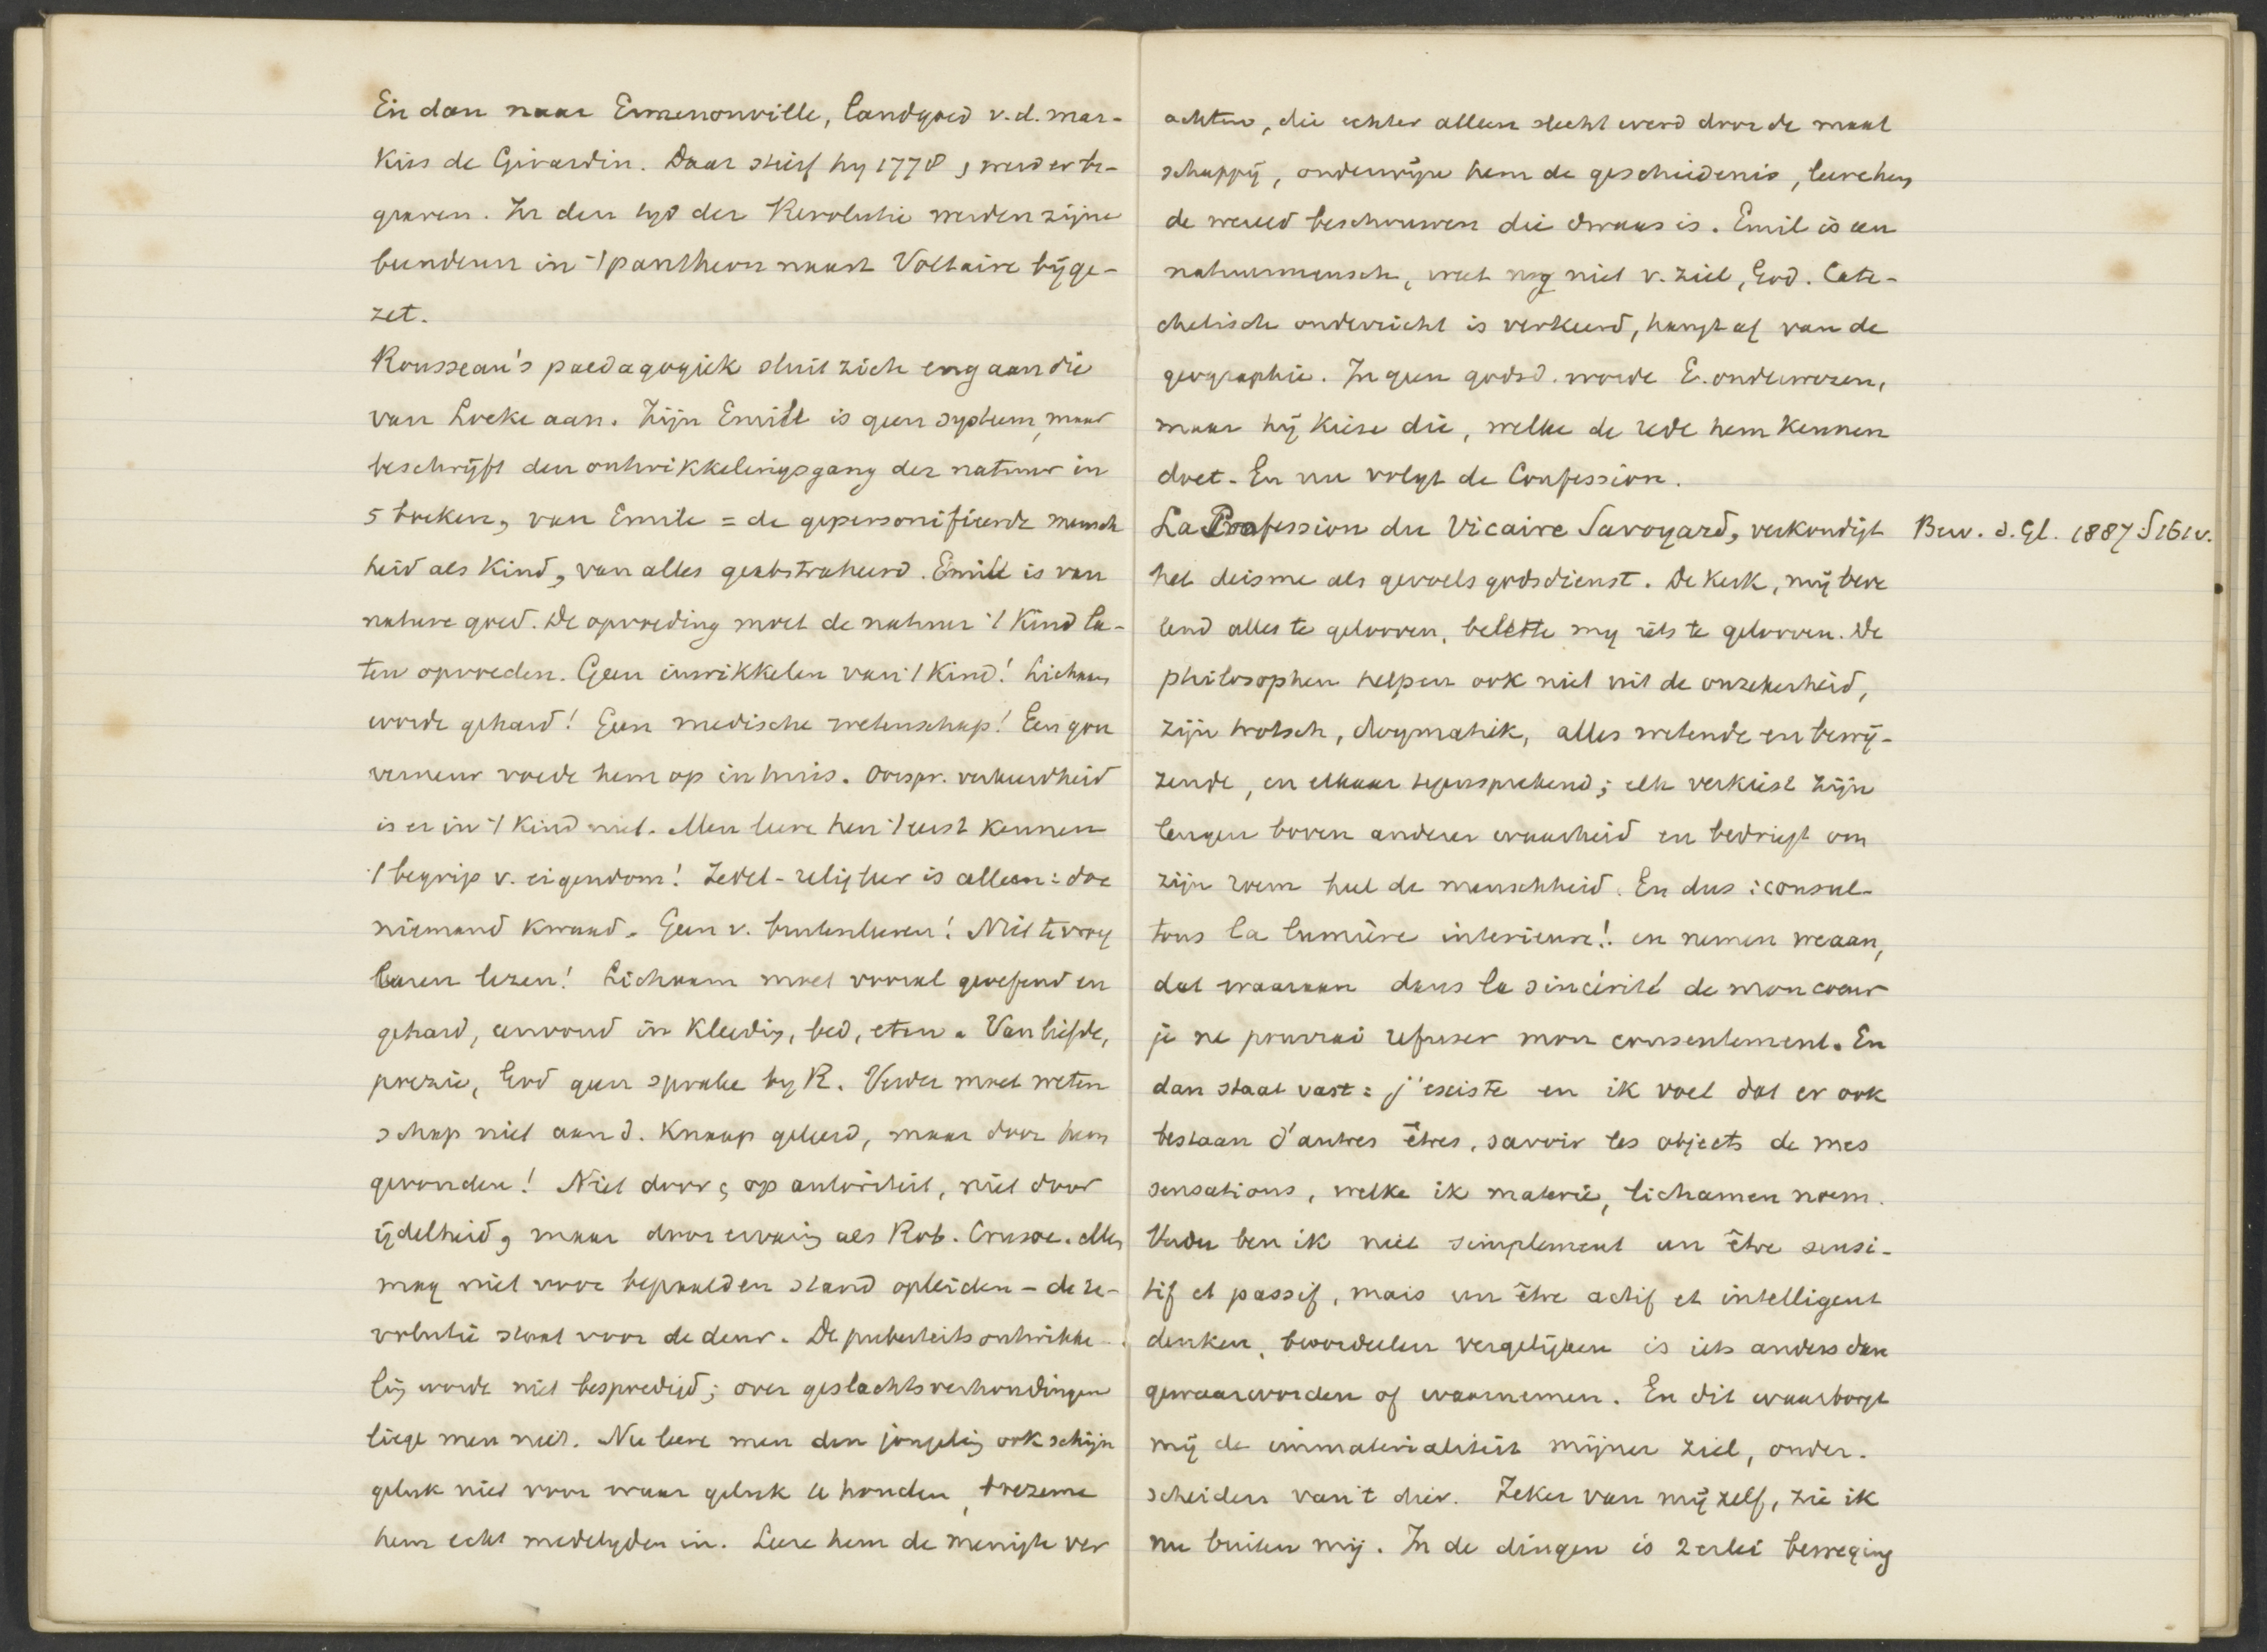 En dan naar Ermenonville, landgoed v.d. mar-
kies de Girardin. Daar stierf hy 1778, werd er be-
graven. In den tyd der Revolutie werden zijne
beenderen in 't pantheon naast Voltaire bijge-
zet.
Rousseau's paedagogiek sluit zich eng aan die
van Locke aan. Zijn Emile is geen systeem, maar
beschrijft den ontwikkelingsgang der natuur in
5 boeken, van Emile = de gepersonifieerde mensch
heid als kind, van alles geabstraheerd. Emile is van
nature goed. De opvoeding moet de natuur 't kind la-
ten opvoeden. Geen inwikkelen van 't kind! Lichaam
worde gehard! Geen medische wetenschap! Een gou
verneur voede hem op in huis. Oorspr. verkeerdheid
is er in 't kind niet. Men leere hen 't eerst kennen
't begrip v. eigendom! Zedel-religleer is alleen: doe
niemand kwaad. Geen v. buitenleeren! Niet te vroeg
leeren lezen! Lichaam moet vooral geoefend en
gehard, eenvoud in kleeding, bed, eten. Van liefde,
poezie, God geen sprake by R. Verder moet weten
schap niet aan d. knaap geleerd, maar door hem
gevonden! Niet door, op autoriteit, niet door
ijdelheid, maar door ervaring als Rob. Crusoe. Men
mag niet voor bepaalden stand opleiden - de re-
volutie staat voor de deur. De puberteitsontwikke-
ling worde niet bespoedigd; over geslachtsverhoudingen
liege men niet. Nu leere men den jongeling ook schijn
geluk niet voor waar geluk te houden, boezeme
hem echt medelyden in. Leere hem de menigte ver
achten, die echter alleen slecht werd door de maat
schappij, onderwijze hem de geschiedenis, leere hem
de wereld beschouwen die dwaas is. Emil is een
natuurmensch, weet nog niet v. ziel, God. Cate-
chetisch onderricht is verkeerd, hangt af van de
geographie. In geen godsd. worde E. onderwezen,
maar hij kieze die, welke de rede hem kennen
doet. En nu volgt de Confession.
La Profession du Vicaire Savoyard, verkondigt
Bew. d. Gl. 1887: S161v.
het deisme als gevoelsgodsdienst. De kerk, mij beve
lend alles te gelooven, belette my iets te gelooven. De
philosophen helpen ook niet uit de onzekerheid,
zijn trotsch, dogmatiek, alles wetende en bewij-
zende, en elkaar tegensprekend; elk verkiest zijn
leugen boven anderer waarheid en bedriegt om
zijn roem heel de menschheid. En dus: consul-
tons la lumière interieure! en nemen we aan,
dat waaraan dans la sincérité de mon coeur
je ne pourrai refuser mon consentement. En
dan staat vast: j'existe en ik voel dat er ook
bestaan d'autres êtres, savoir les objects de mes
sensations, welke ik materie, lichamen noem.
Verder ben ik niet simplement un être sensi-
tif et passif, mais un être actif et intelligent
denken, beoordeelen vergelijken is iets anders dan
gewaarworden of waarnemen. En dit waarborgt
mij de immaterialiteit mijner ziel, onder-
scheiden van 't dier. Zeker van mij zelf, zie ik
nu buiten mij. In de dingen is 2erlei beweging